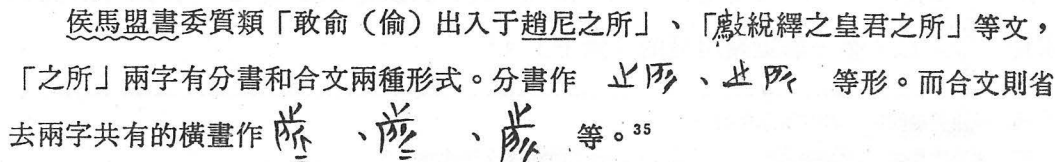 侯馬盟書委質類「敢俞（偷）出入于趙尼之所」、「敺繹之皇君之所」等文，
「之所」兩字有分書和合文兩種形式。分書作 、 等形。而合文則省
去兩字共有的橫畫作 、 、 等。³⁵